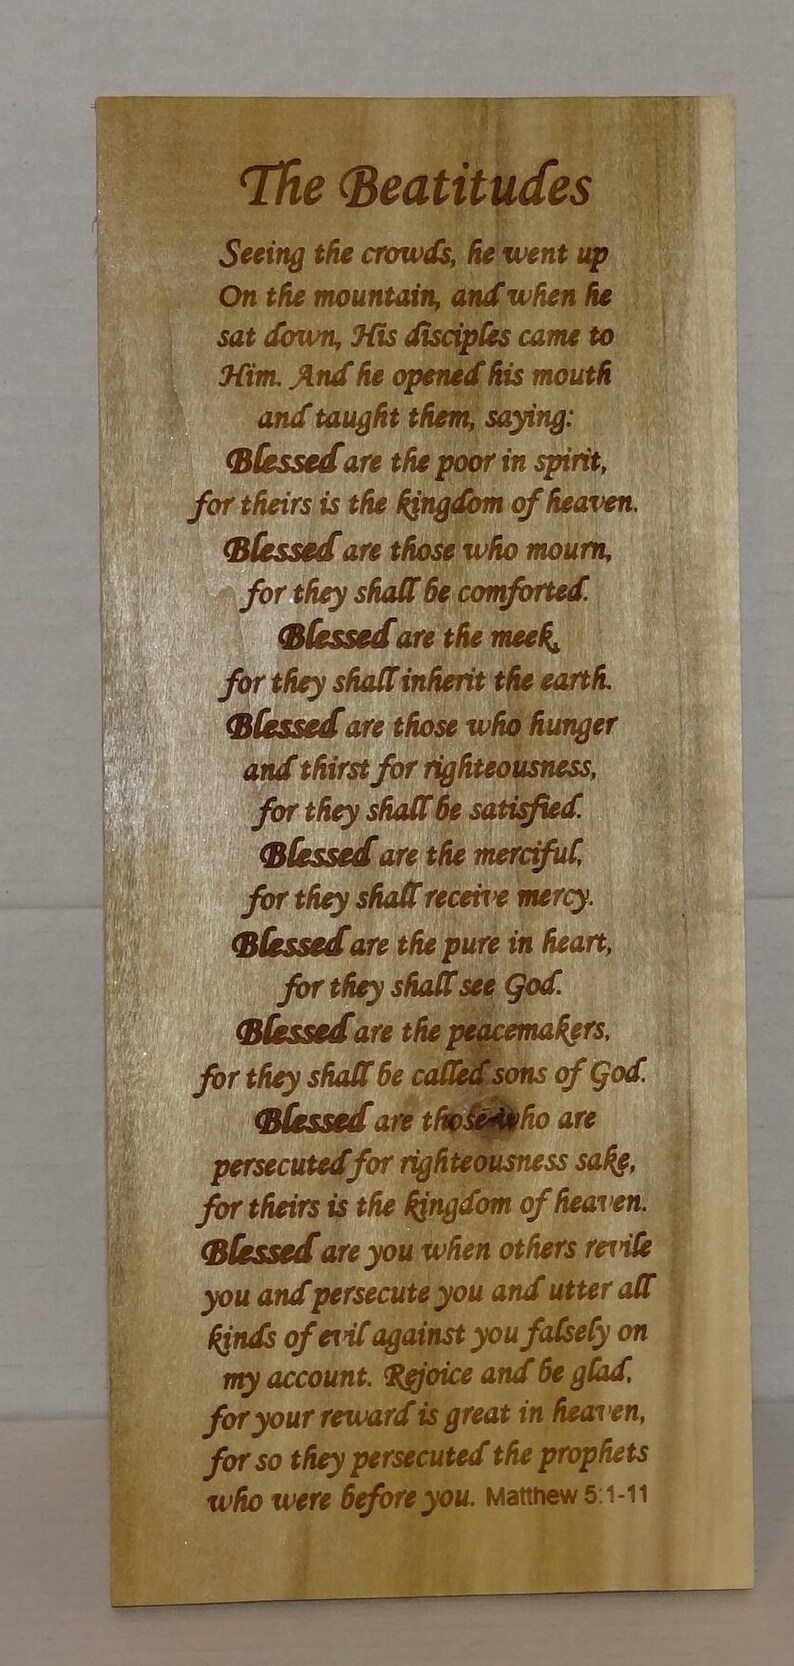 The Beatitudes
Seeing the crowds, he went up
On the mountain, and when he
sat down, His disciples came to
Him. And he opened his mouth
and taught them, saying:
Blessed are the poor in spirit,
for theirs is the kingdom of heaven.
Blessed are those who mourn,
for they shall be comforted.
Blessed are the meek,
for they shall inherit the earth.
Blessed are those who hunger
and thirst for righteousness,
for they shall be satisfied.
Blessed are the merciful,
for they shall receive mercy.
Blessed are the pure in heart,
for they shall see God.
Blessed are the peacemakers,
for they shall be called sons of God.
Blessed are those who are
persecuted for righteousness sake,
for theirs is the kingdom of heaven.
Blessed are you when others revile
you and persecute you and utter all
kinds of evil against you falsely on
my account. Rejoice and be glad,
for your reward is great in heaven,
for so they persecuted the prophets
who were before you. Matthew 5:1-11